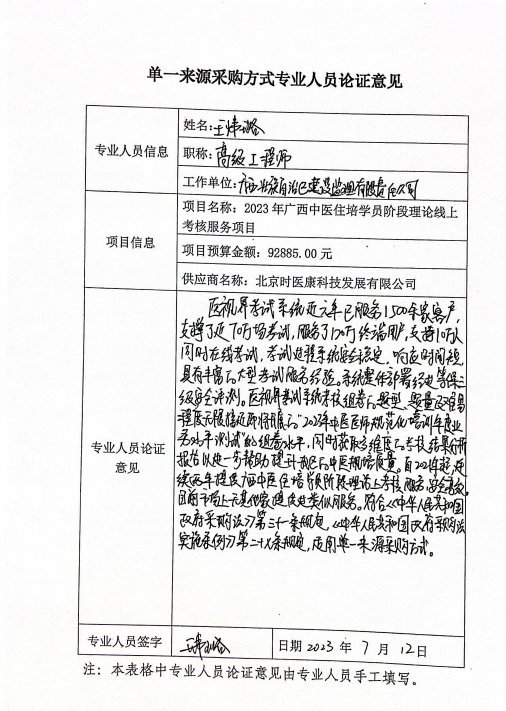 单一来源采购方式专业人员论证意见
专业人员信息
姓名：王炜璐
职称：高级工程师
工作单位：广西壮族自治区建设监理有限责任公司
项目信息
项目名称：2023年广西中医住培学员阶段理论线上
考核服务项目
项目预算金额：92885.00 元
供应商名称：北京时医康科技发展有限公司
专业人员论证
意见
医视界考试系统近三年已服务1500余家客户，
支撑了近70万场考试，服务了170万终端用户，支持10万人
同时在线考试，考试过程系统安全稳定，响应时间短，
具有丰富的大型考试服务经验。系统整体部署经过等保三
级安全评测。医视界考试系统考核组卷的题型、题量及难易
程度
“2023年中医医师规范化培训年度业
务水平测试”的组卷水平，同时获取多维度的考核结果分析
报告以进一步帮助提升我区的中医规培质量。自2021年起连
续两年提供广西中医住培学员阶段理论线上考核服务，安全稳定。
目前市场上无其他家提供此类似服务。符合《中华人民共和国
政府采购法》第三十一条规定，《中华人民共和国政府采购法
实施条例》第二十七条规定，适用单一来源采购方式。
专业人员签字
王炜璐
日期 2023 年 7 月 12日
注：本表格中专业人员论证意见由专业人员手工填写。